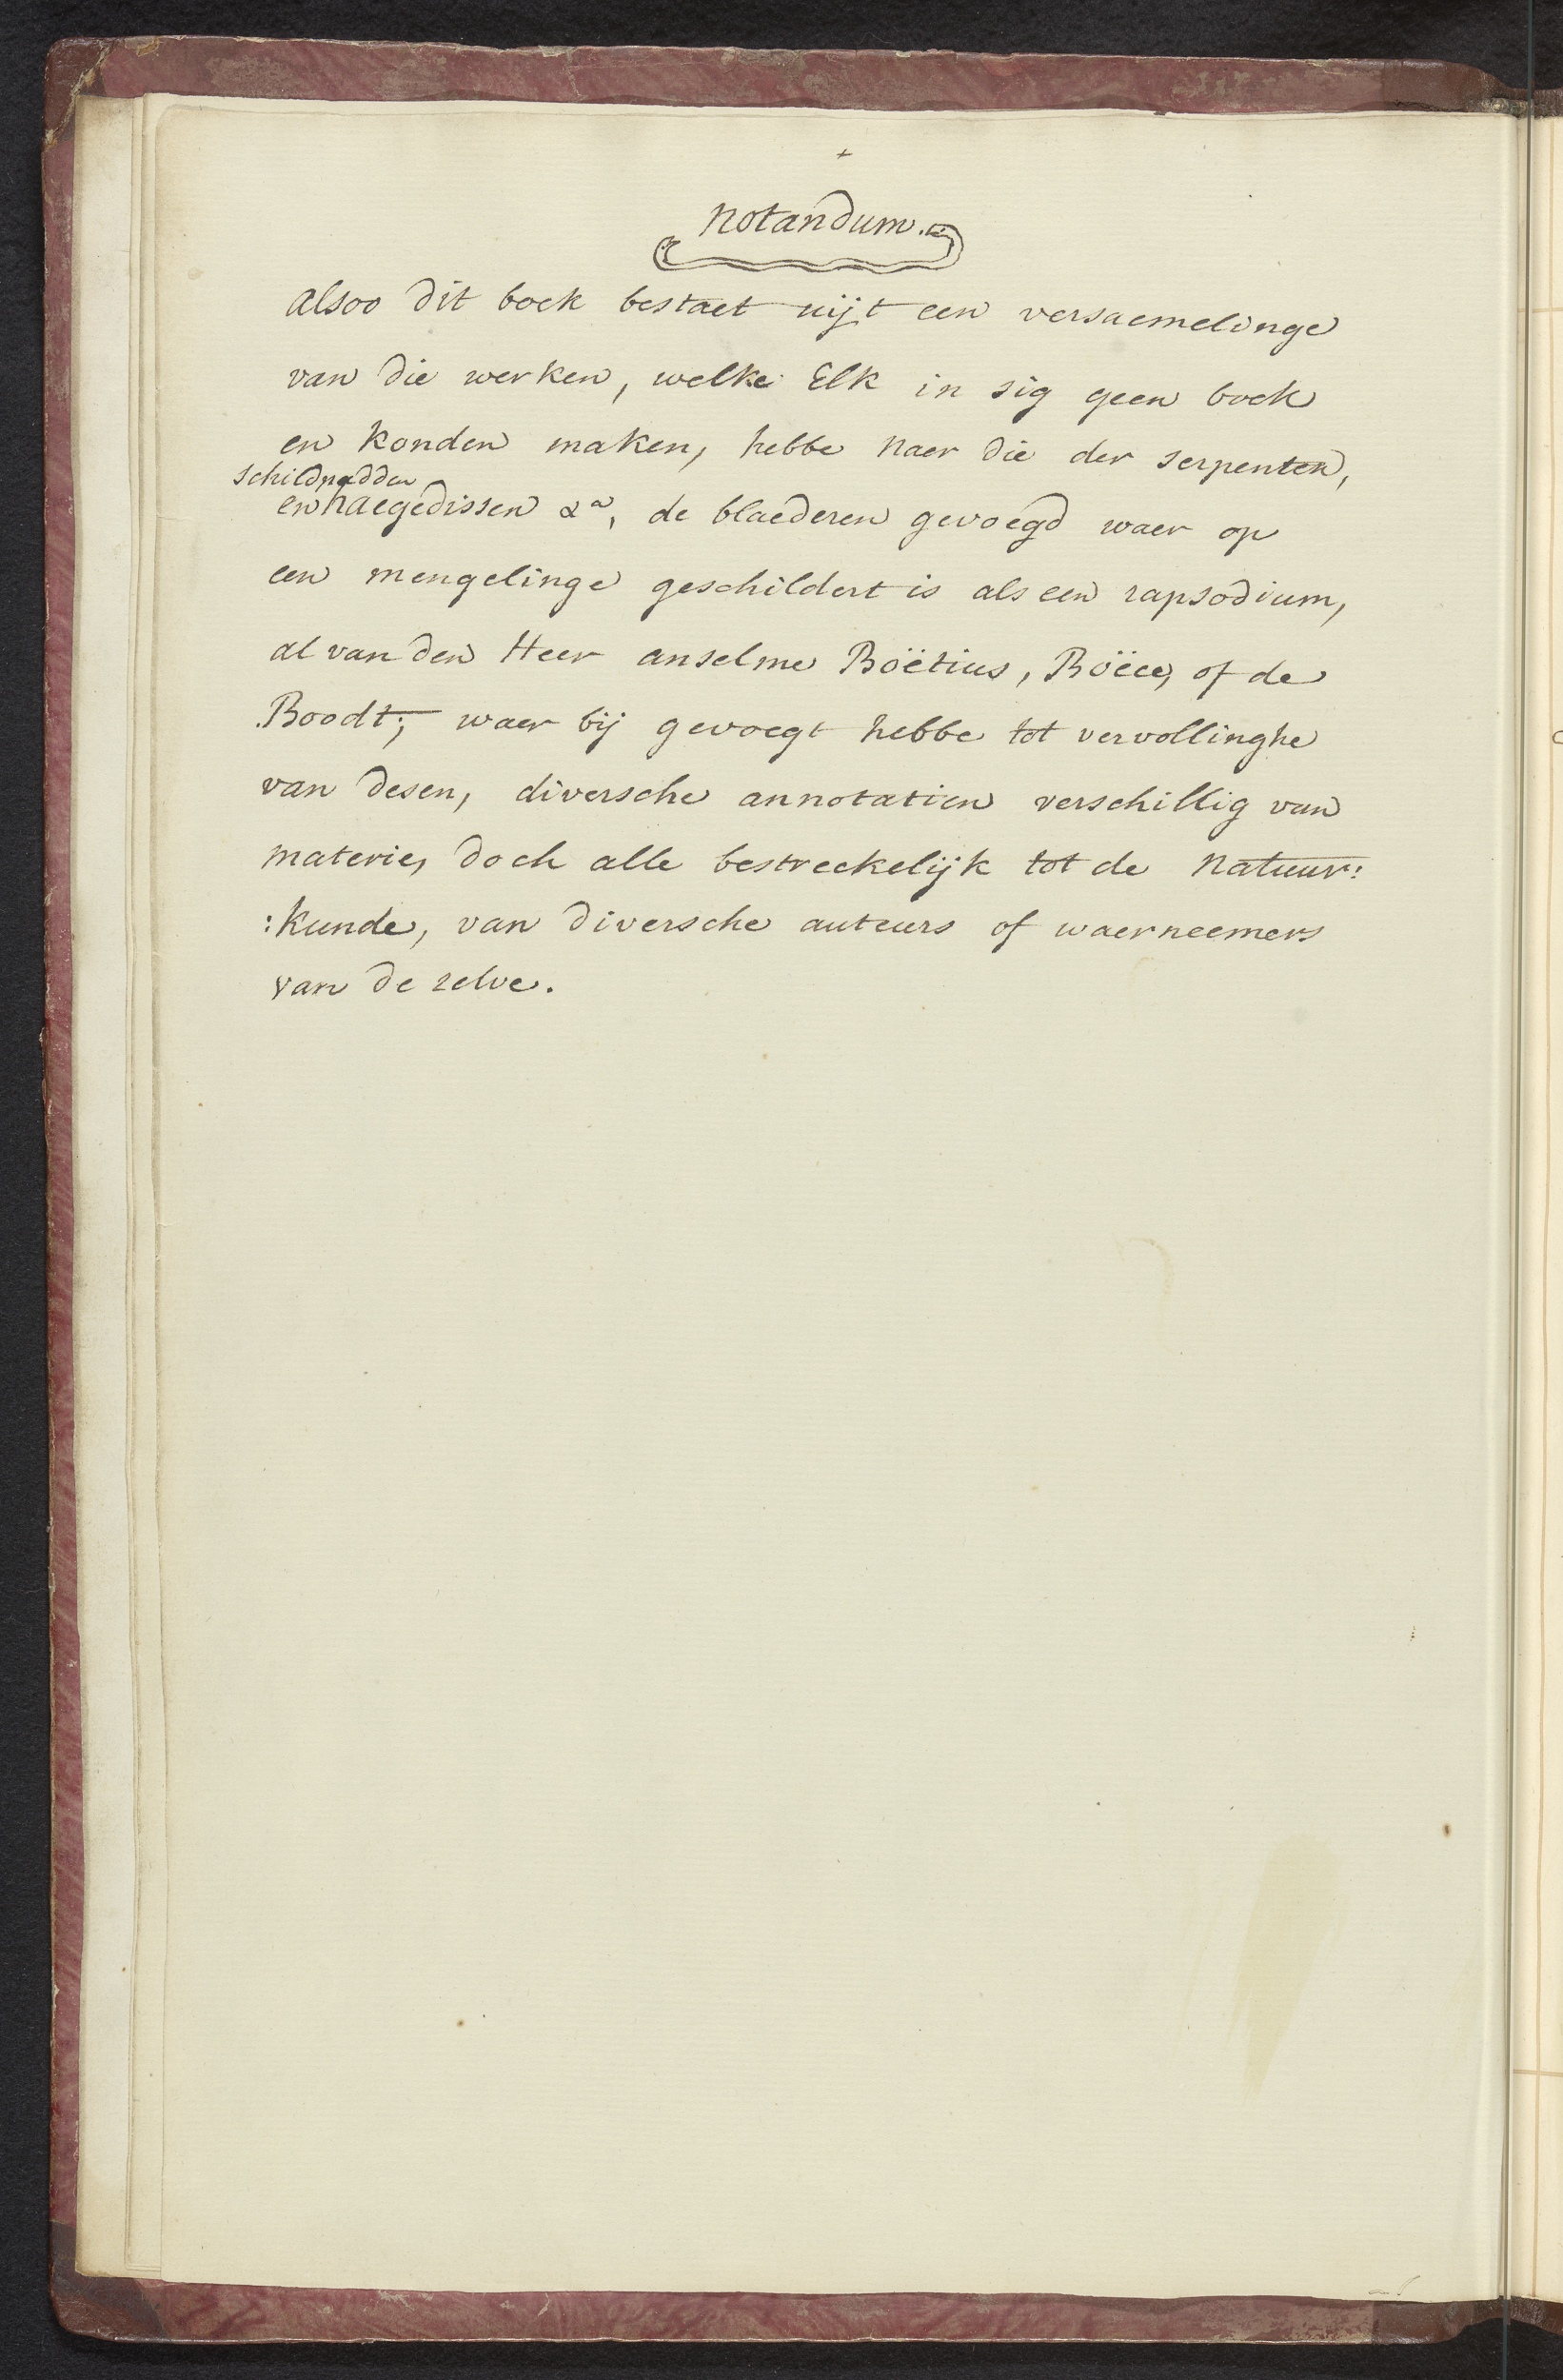 +
Notandum.
alsoo dit boek bestaet uijt een versaemelinge
van die werken, welke Elk in sig geen boek
en konden maken, hebbe naer die der serpenten,
schildpadden
en haegedissen &a, de blaederen gevoegd waer op
een mengelinge geschildert is als een rapsodium,
al van den Heer anselme Boëtius, Boëce, of de
Boodt; waer bij gevoegt hebbe tot vervollinghe
van desen, diversche annotatien verschillig van
materie, doch alle bestreckelijk tot de Natuur:
:kunde, van diversche auteurs of waerneemers
van de zelve.